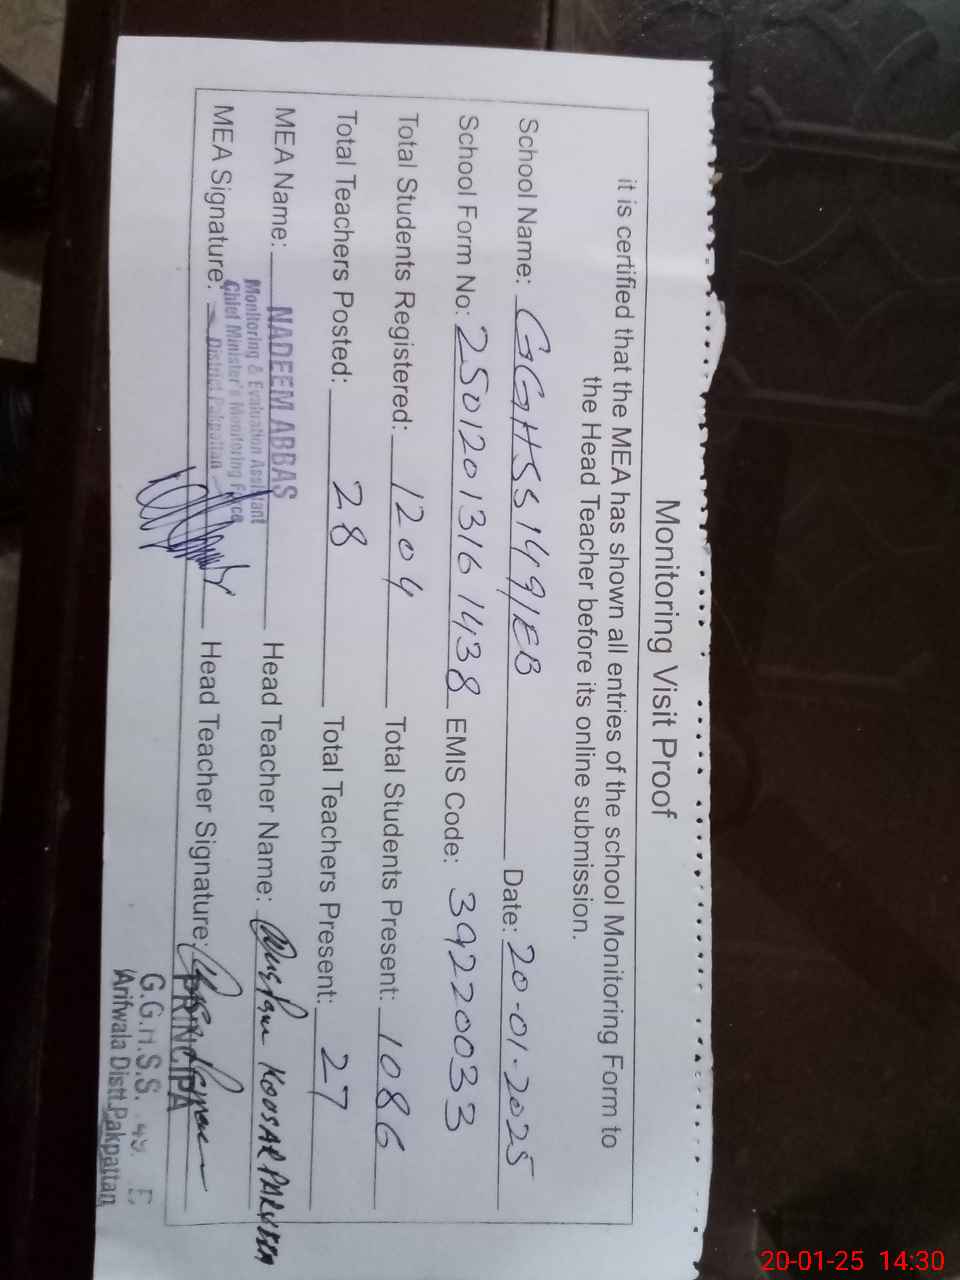 Monitoring Visit Proof
it is certified that the MEA has shown all entries of the school Monitoring Form to
the Head Teacher before its online submission.
School Name: GGHSS 149/EB Date: 20-01-2025
School Form No: 25012013161438 EMIS Code: 39220033
Total Students Registered: 1204 Total Students Present: 1086
Total Teachers Posted: 28 Total Teachers Present: 27
MEA Name: NADEEM ABBAS Head Teacher Name: KOUSAR PARVEEN
Monitoring & Evaluation Assistant
Chief Minister's Monitoring Force
MEA Signature: District Pakpattan Head Teacher Signature:
PRINCIPA
G.G.H.S.S. 49 E
Arifwala Distt.Pakpattan
20-01-25 14:30